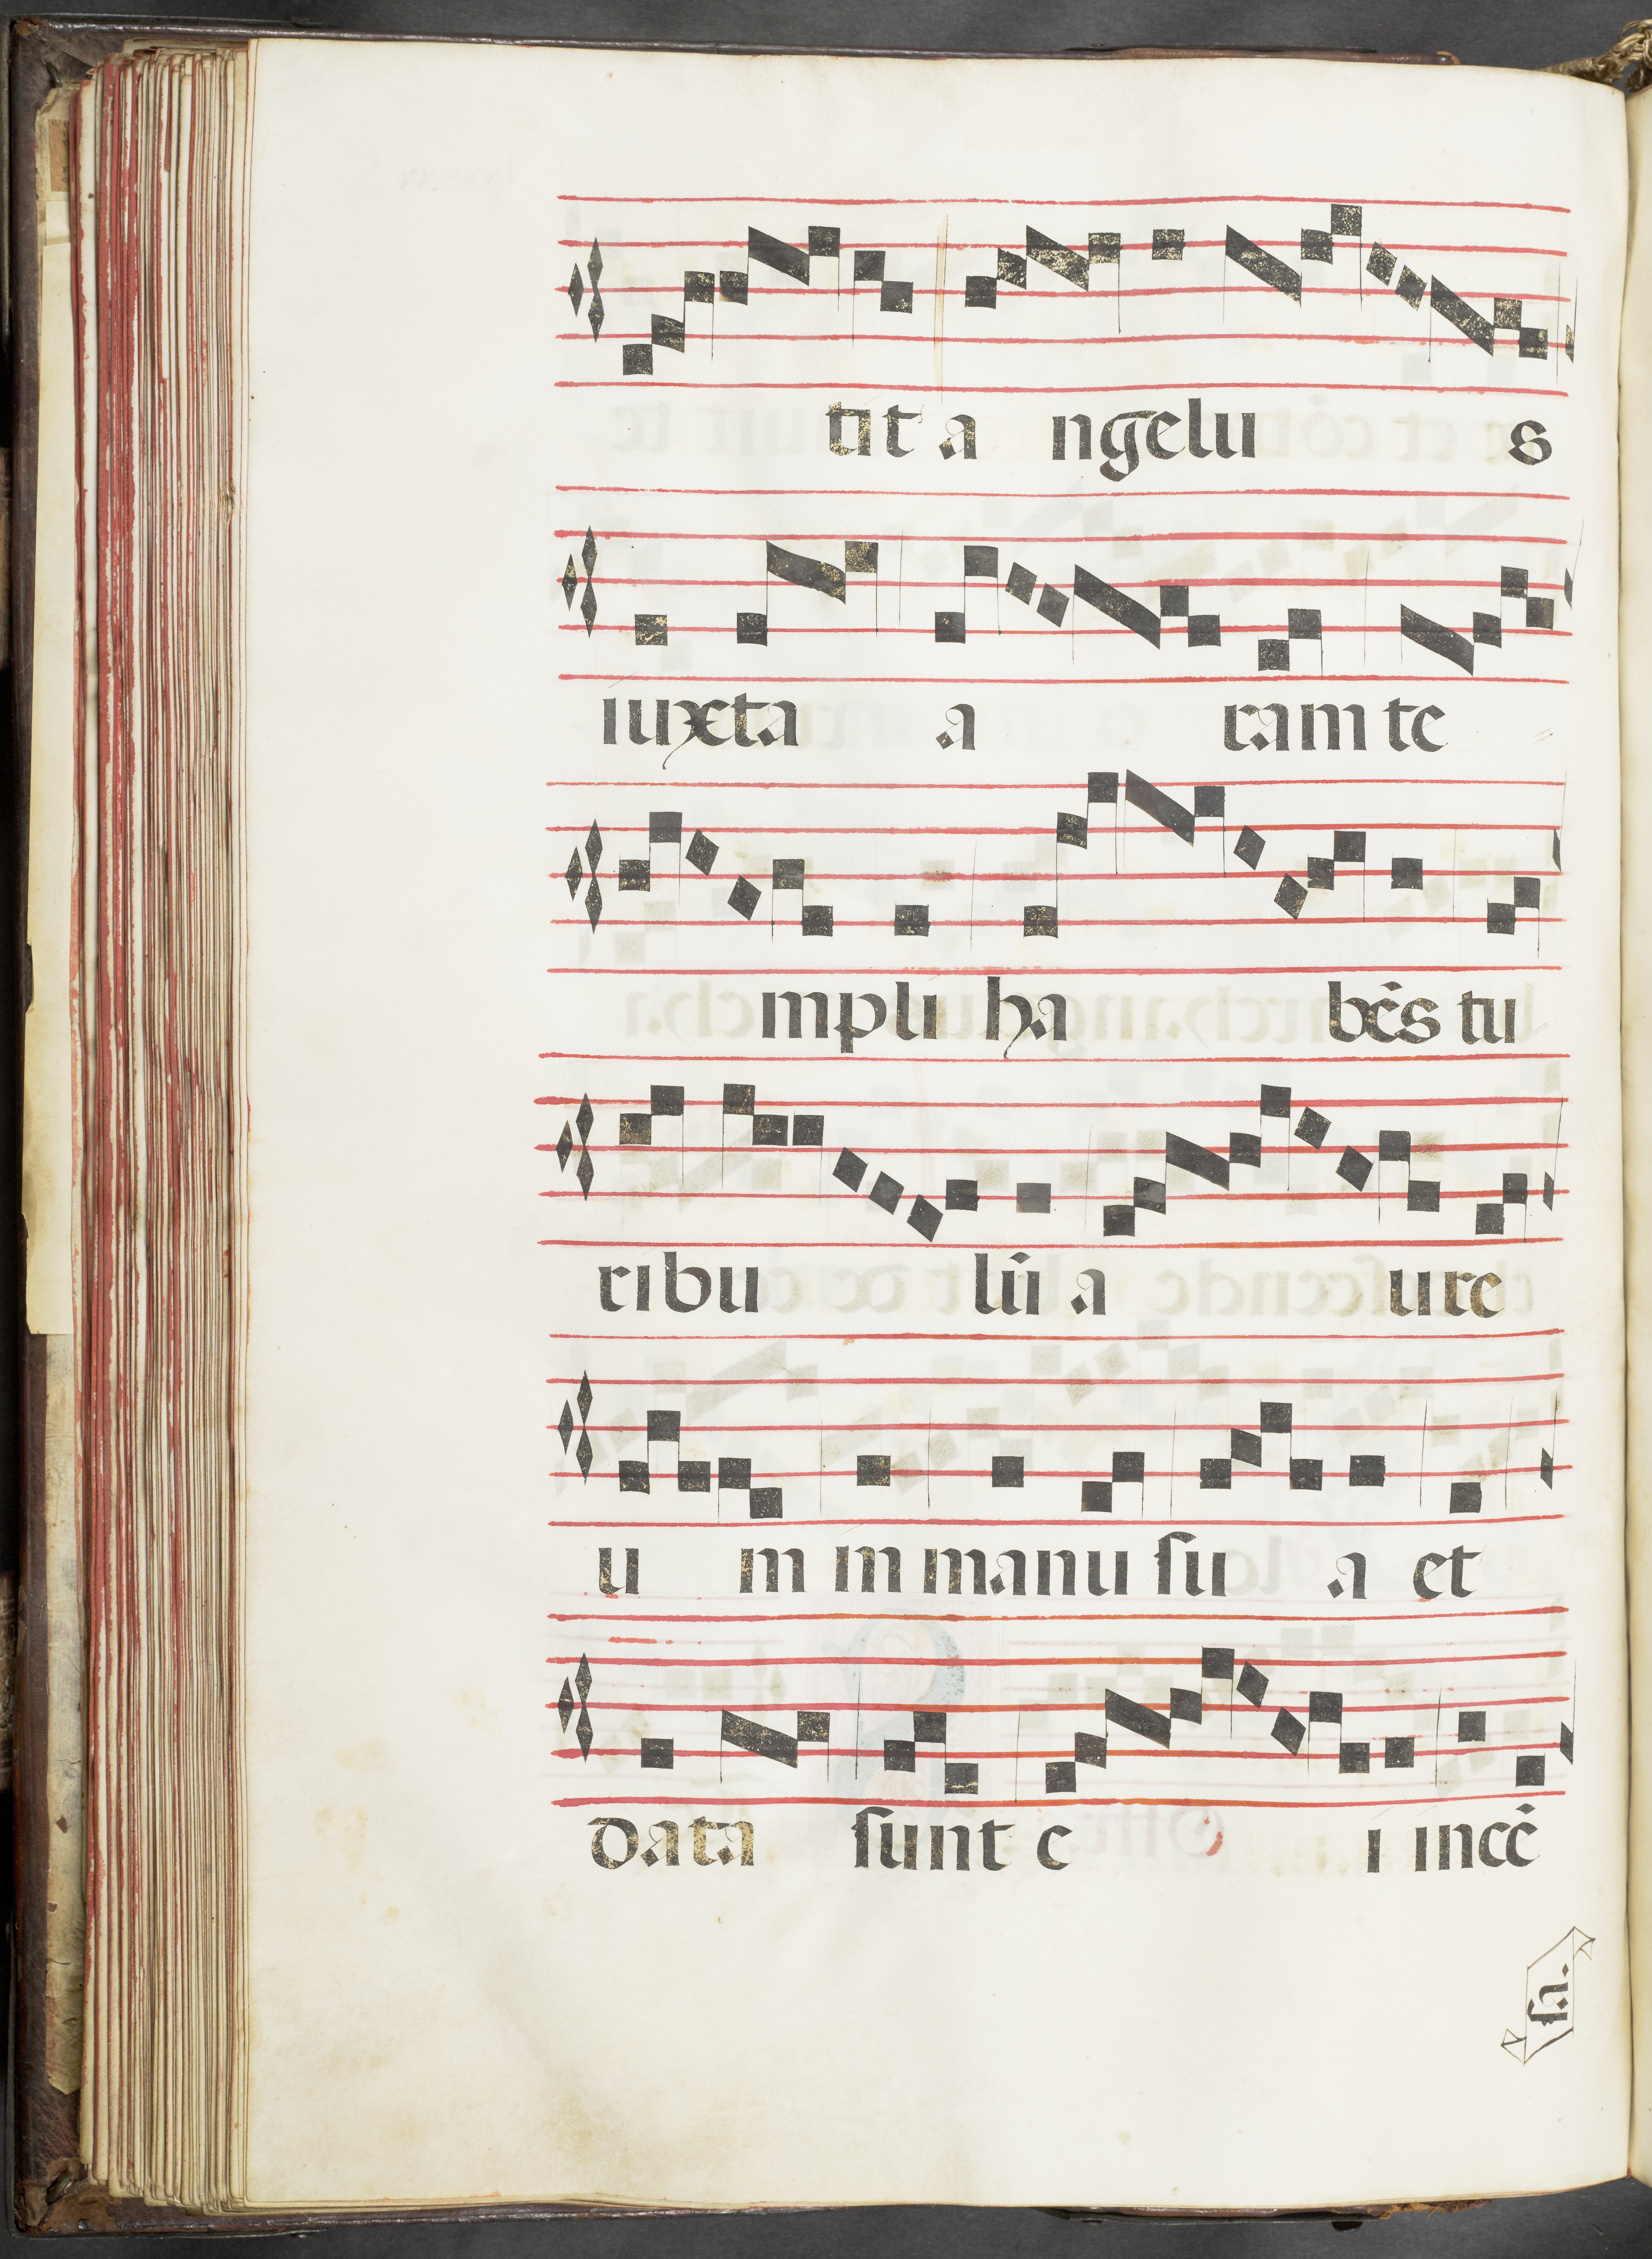 tit a ngelu s
iuxta a ram te
mpli ha bēs tu
ribu lū a ure
u m in manu ſu a et
data sunt e i incē
ſa.